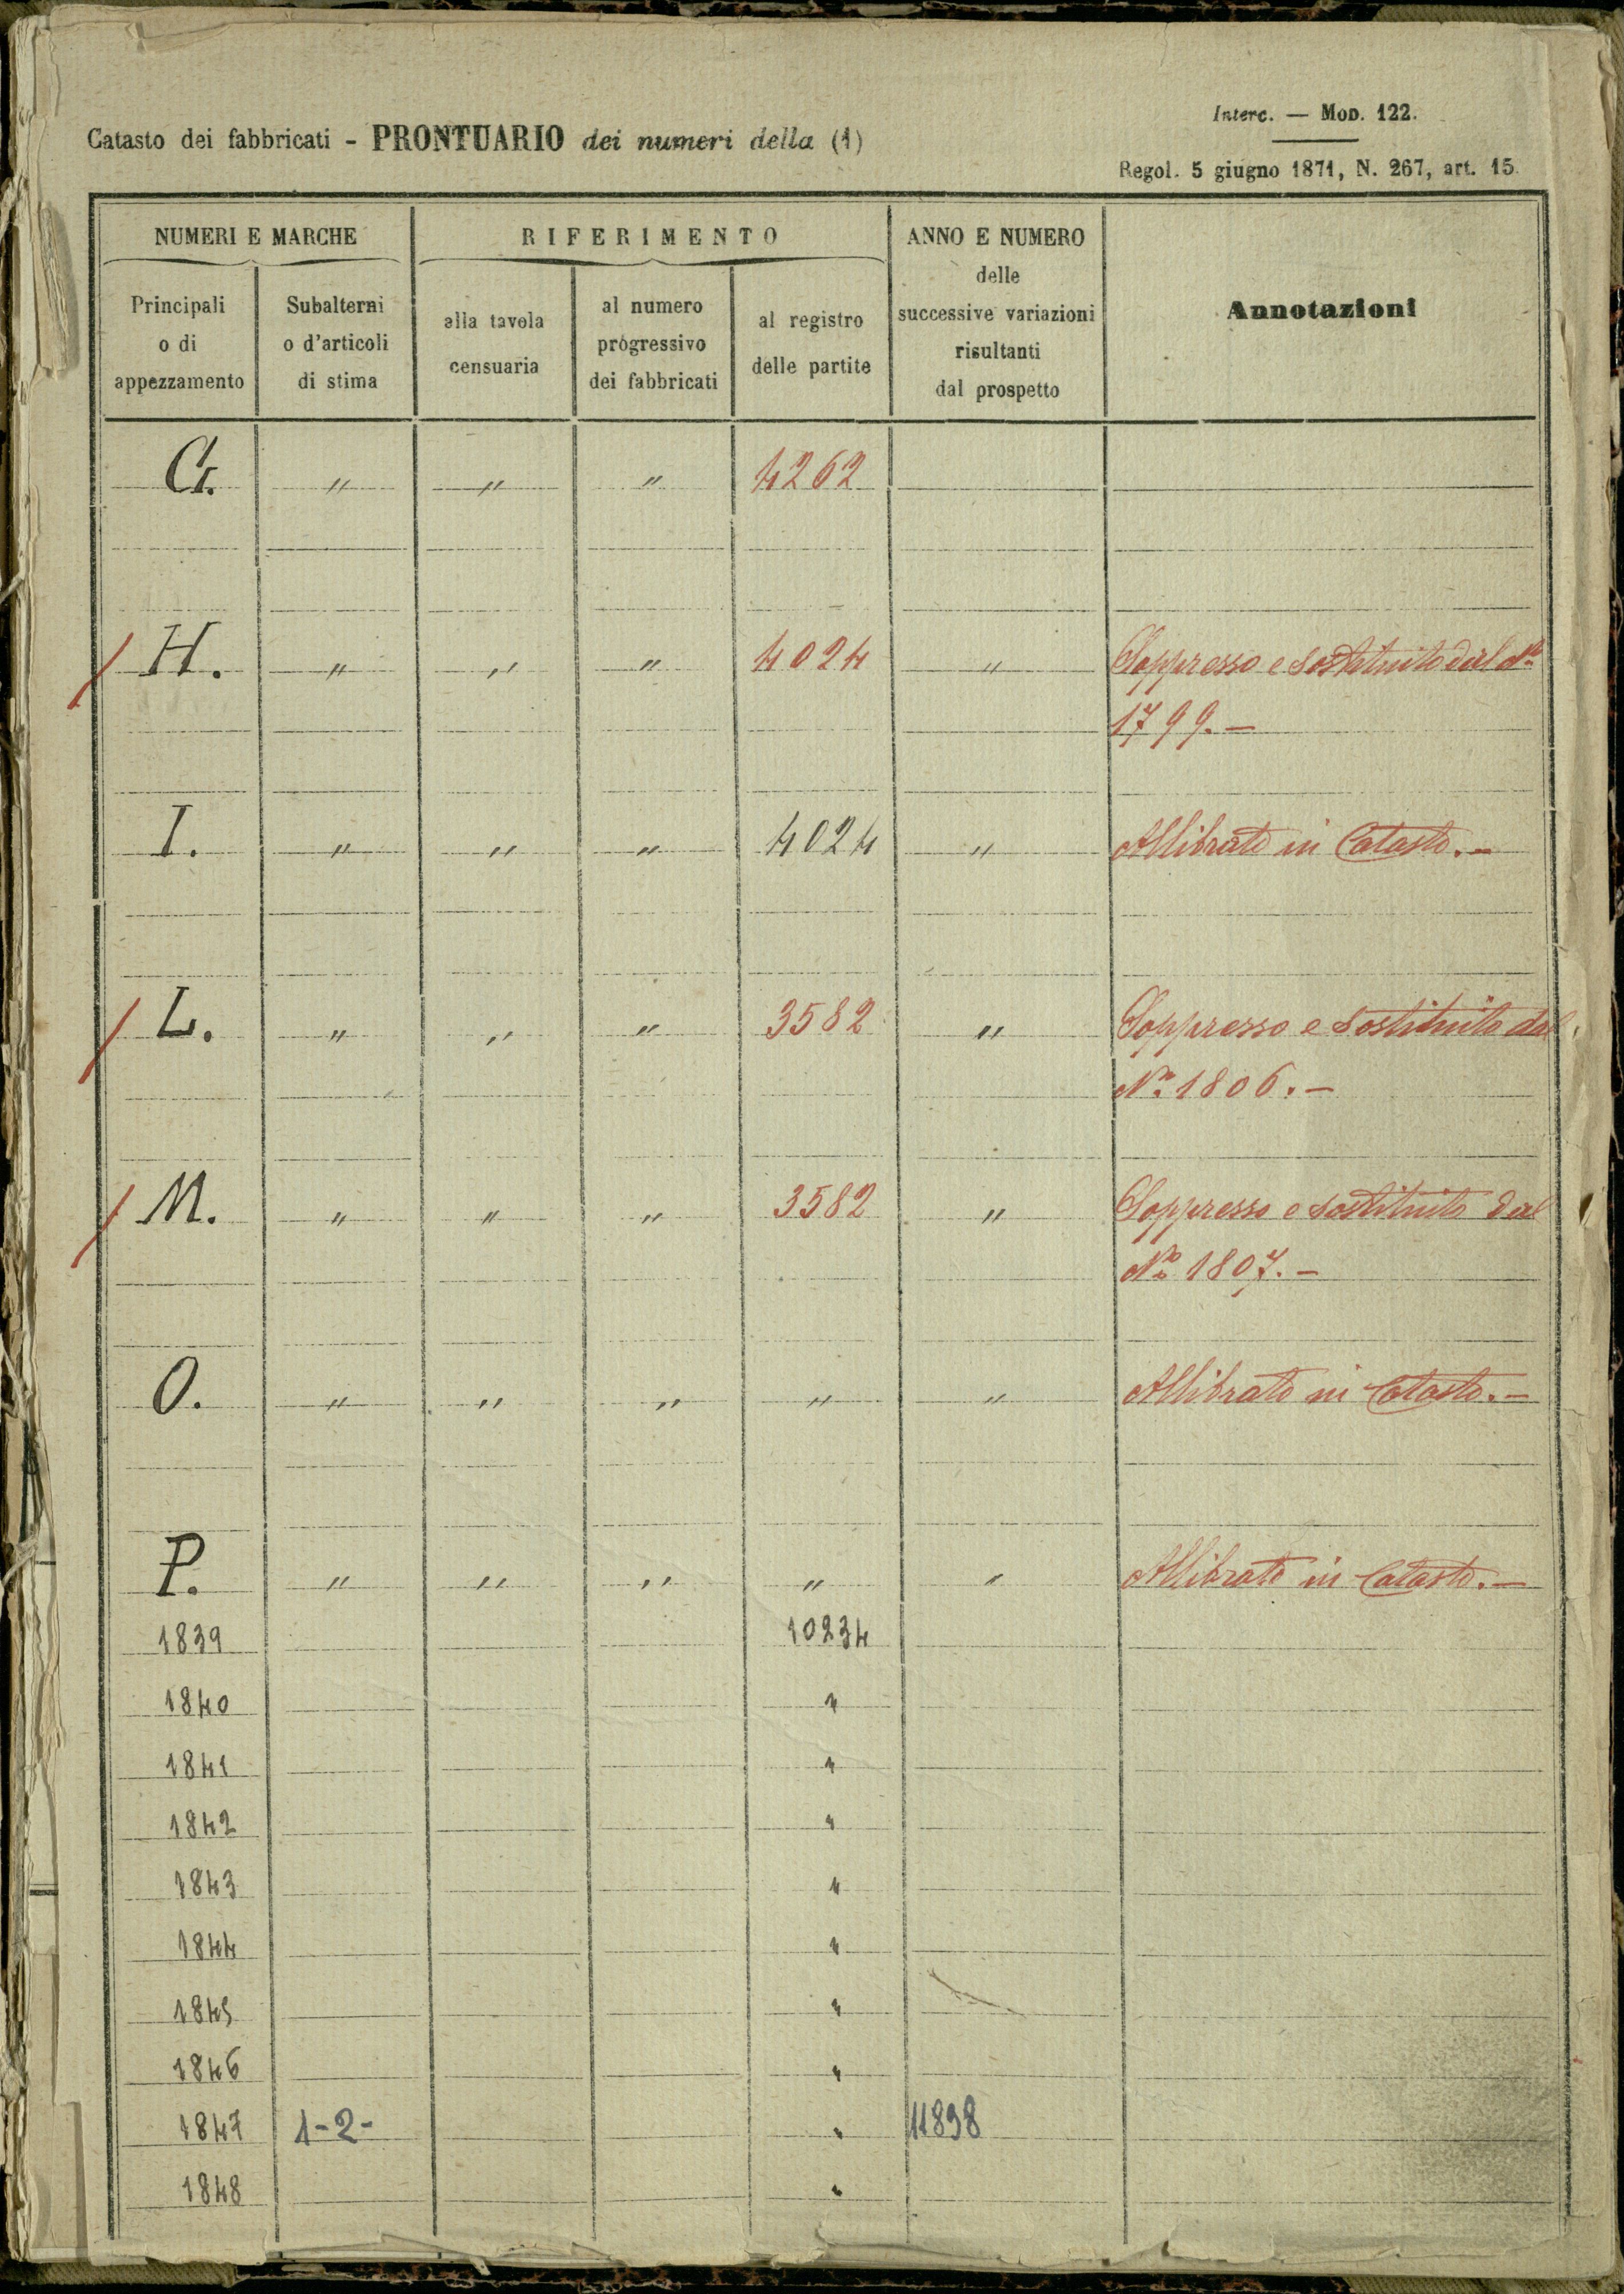 Interc. — MOD. 122.
Catasto dei fabbricati - PRONTUARIO dei numeri della (1)
Regol. 5 giugno 1871, N. 267, art. 15.
NUMERI E MARCHE
RIFERIMENTO
ANNO E NUMERO
delle
successive variazioni
risultanti
dal prospetto
Annotazioni
Principali
o di
appezzamento
Subalterni
o d'articoli
di stima
alla tavola
censuaria
al numero
progressivo
dei fabbricati
al registro
delle partite
G. " " " 4262
H. " " " 4024 " Soppresso e sostituito dal No
1799.—
I. " " " 4024 " Allibrato in Catasto.—
L. " " " 3582 " Soppresso e sostituito dal
No 1806.—
M. " " " 3582 " Soppresso e sostituito dal
No 1807.—
O. " " " " " Allibrato in Catasto.—
P. " " " " " Allibrato in Catasto.—
1839 10234
1840 "
1841 "
1842 "
1843 "
1844 "
1845 "
1846 "
1847 1-2- " 11898
1848 "